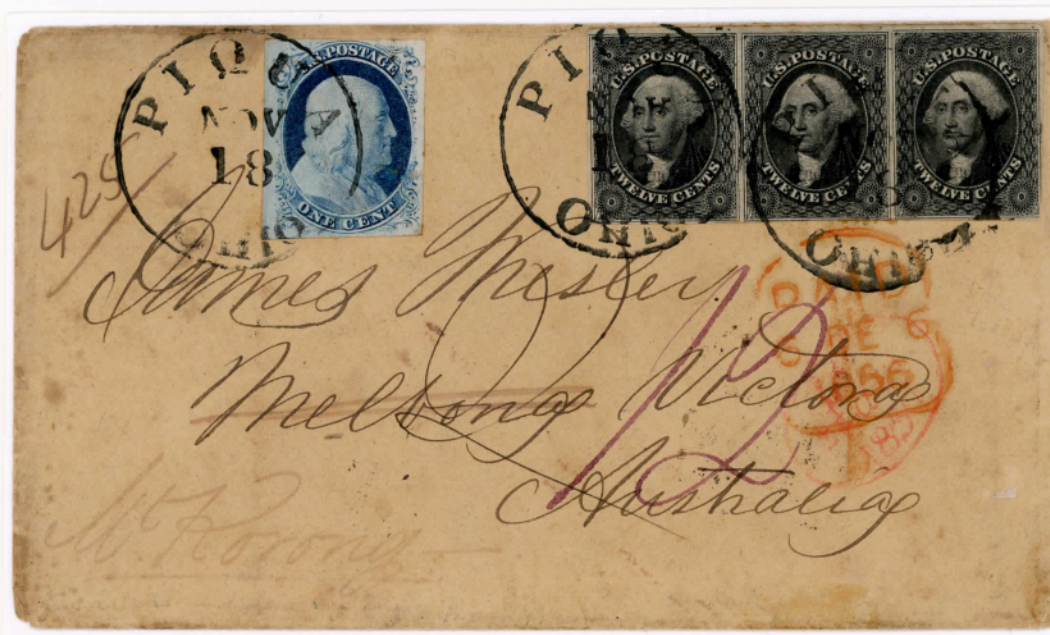 PIQUA
NOV
18
OHIO
U.S. POSTAGE
ONE CENT
PIQ
18
OHIO
U.S. POSTAGE
TWELVE CENTS
U.S. POSTAGE
TWELVE CENTS
U.S. POSTAGE
TWELVE CENTS
OHIO
425/
James Mesley
PAID
6 DE 6
1856
12
Victoria
Australia
Mt Korong